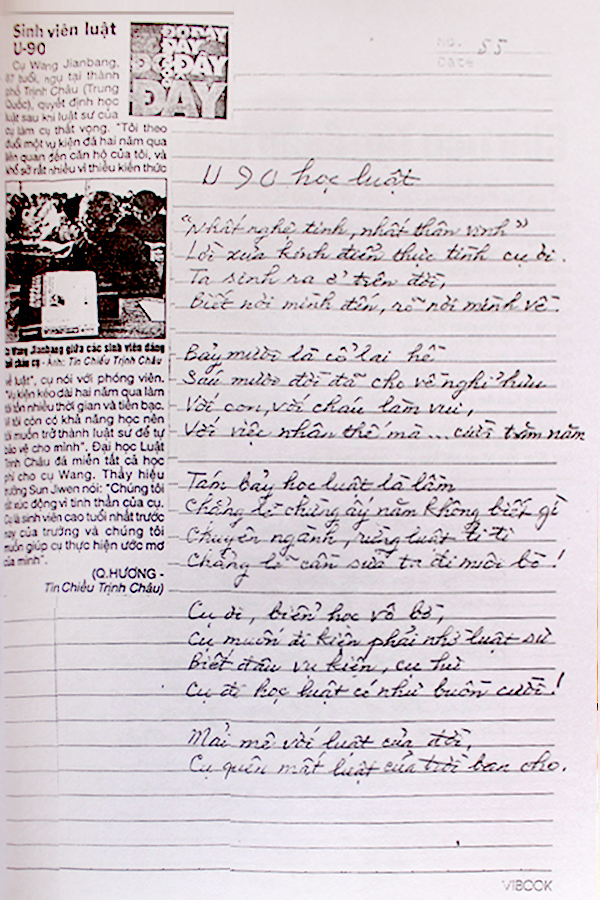 Sinh viên luật
U-90
Cụ Wang Jianbang,
87 tuổi, ngụ tại thành
phố Trịnh Châu (Trung
Quốc), quyết định học
luật sau khi luật sư của
cụ làm cụ thất vọng. "Tôi theo
đuổi một vụ kiện đã hai năm qua
liên quan đến căn hộ của tôi, và
khổ sở rất nhiều vì thiếu kiến thức
ĐÓ ĐÂY
ĐÂY
ĐÓ ĐÂY
ĐÂY
Wang Jianbang giữa các sinh viên đáng
tuổi cháu cụ - Ảnh: Tin Chiều Trịnh Châu
về luật", cụ nói với phóng viên.
"Vụ kiện kéo dài hai năm qua làm
tôi tốn nhiều thời gian và tiền bạc.
Vì tôi còn có khả năng học nên
tôi muốn trở thành luật sư để tự
bảo vệ cho mình". Đại học Luật
Trịnh Châu đã miễn tất cả học
phí cho cụ Wang. Thầy hiệu
trưởng Sun Jiwen nói: "Chúng tôi
rất xúc động vì tinh thần của cụ.
Cụ là sinh viên cao tuổi nhất trước
nay của trường và chúng tôi
muốn giúp cụ thực hiện ước mơ
của mình".
(Q.HƯƠNG -
Tin Chiều Trịnh Châu)
No. 55
Date
U 90 học luật
"Nhất nghệ tinh, nhất thân vinh"
Lời xưa kinh điển thực tình cụ ơi.
Ta sinh ra ở trên đời,
Biết nơi mình đến, rõ nơi mình về.
Bảy mươi là cổ lai hề
Sáu mươi đời đã cho về nghỉ hưu
Với con, với cháu làm vui,
Với việc nhân thế mà ... cười trăm năm
Tám bảy học luật là lầm
Chẳng lẽ chừng ấy năm không biết gì
Chuyên ngành, riêng luật ti ti
Chẳng lẽ cần sữa ta đi nuôi bò!
Cụ ơi, biển học vô bờ,
Cụ muốn đi kiện phải nhờ luật sư
Biết đâu vụ kiện, cụ hư
Cụ đi học luật có như buồn cười!
Mải mê với luật của đời,
Cụ quên mất luật của trời ban cho.
VIBOOK